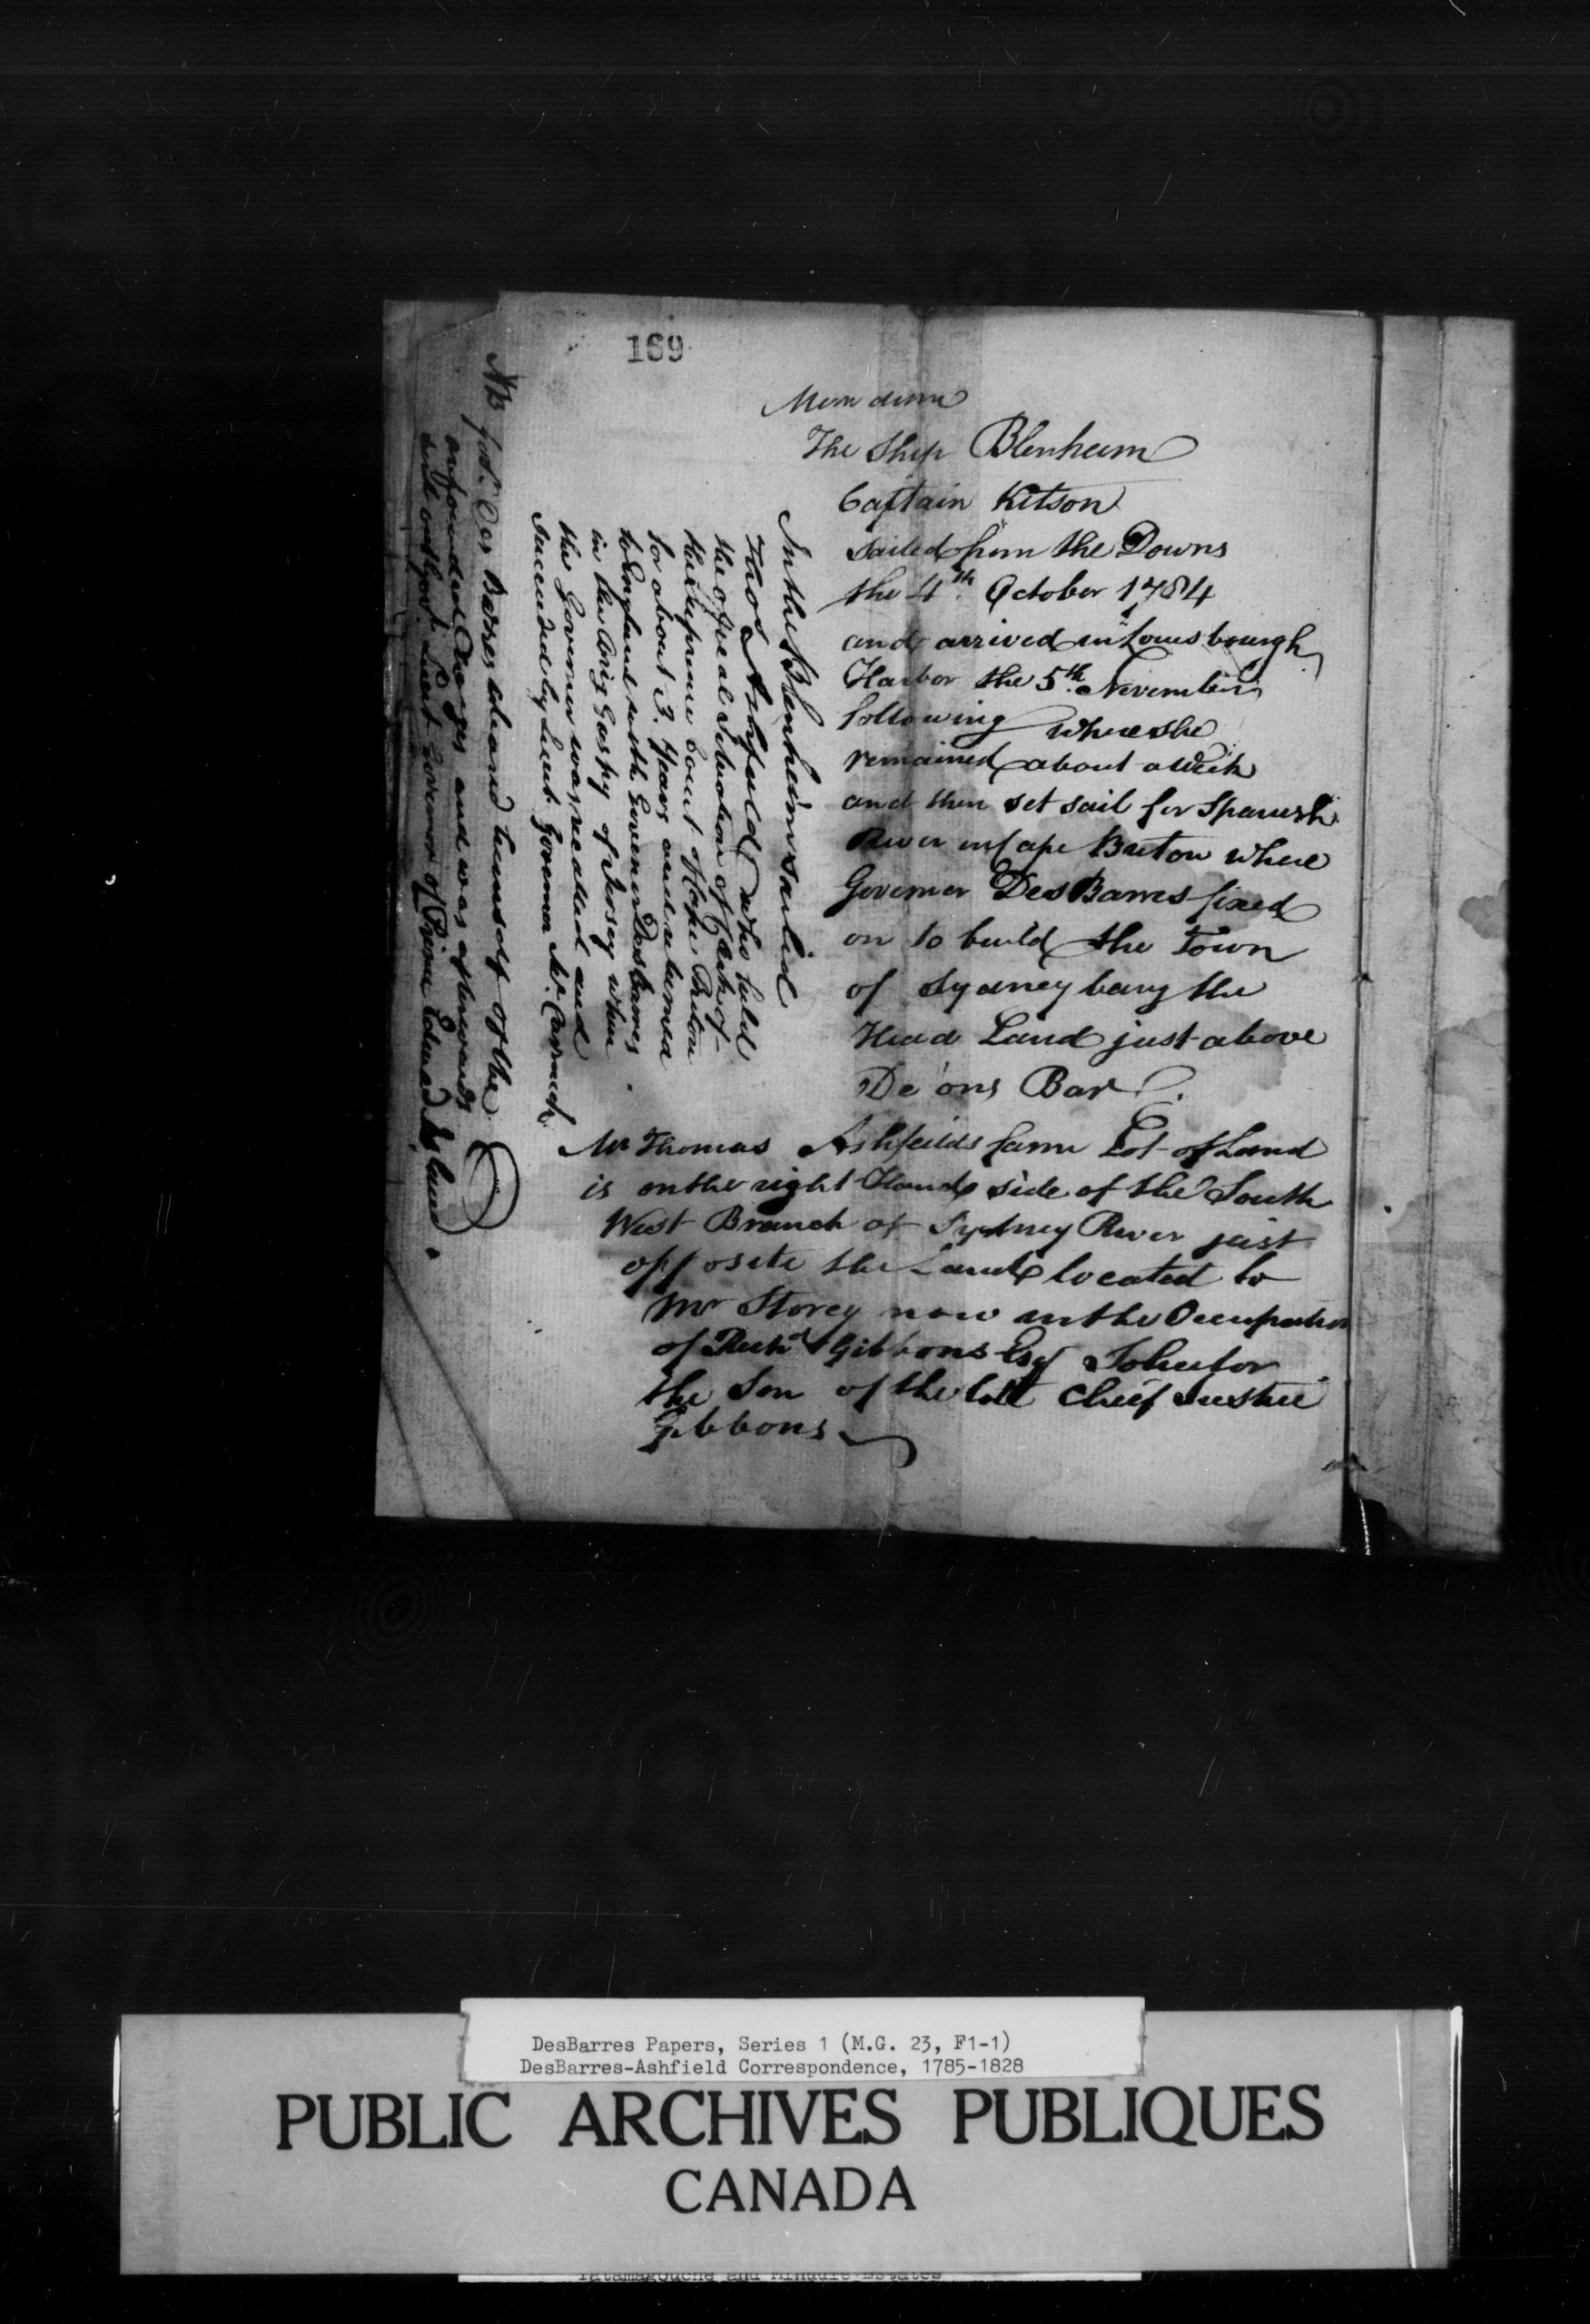 169
Mem dum
The Ship Blenheim
Captain Kitson
sailed from the Downs
the 4th October 1784
and arrived in Louisbourgh
Harbor the 5th November
following where she
remained about a Week
and then set sail for Spanish
River in Cape Breton where
Governor DesBarres fixed
on to build the Town
of Sydney being the
Head Land just above
Bar
Mr Thomas Ashfeilds farm Lot of Land
is on the right Hand side of the South
West Branch of Sydney River just
opposite the Land located to
Mr Storey now in the Occupation
of Richd Gibbons Esq Solicitor
the Son of the late Chief Justice
Gibbons
In the Blenheim sailed
Thos Ashfeild who held
the official Situation of Clerk of
the Supreme Court of Cape Breton
for about 3 Years and returned
to England with Governer DesBarres
in the Brig Gaspy of Jersey when
the Governer was recalled and
succeeded by Lieut. Governor McCormick
NB Govr Des Barres cleared himself of the
unfounded Charges and was afterwards
sent out Govr Lieut Governor of Prince Edward Island.
DesBarres Papers, Series 1 (M.G. 23, F1-1)
DesBarres-Ashfield Correspondence, 1785-1828
PUBLIC ARCHIVES PUBLIQUES
CANADA
Tatamagouche and Minudie Estates